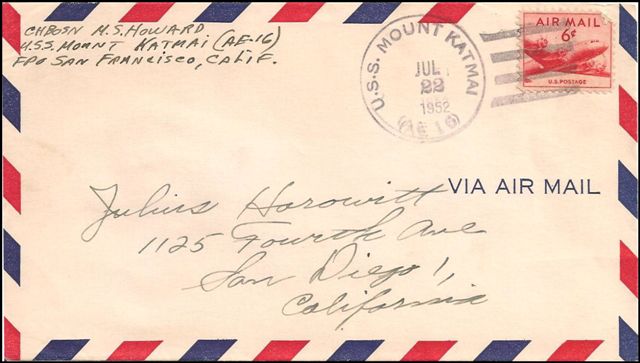 CHBOSN M.S. HOWARD
U.S.S. MOUNT KATMAI (AE-16)
FPO SAN FRANCISCO, CALIF.
U.S.S. MOUNT KATMAI
JUL
22
1952
(AE 16)
AIR MAIL
6¢
U.S. POSTAGE
VIA AIR MAIL
Julius Horowitt
1125 Fourth Ave
San Diego 1,
California